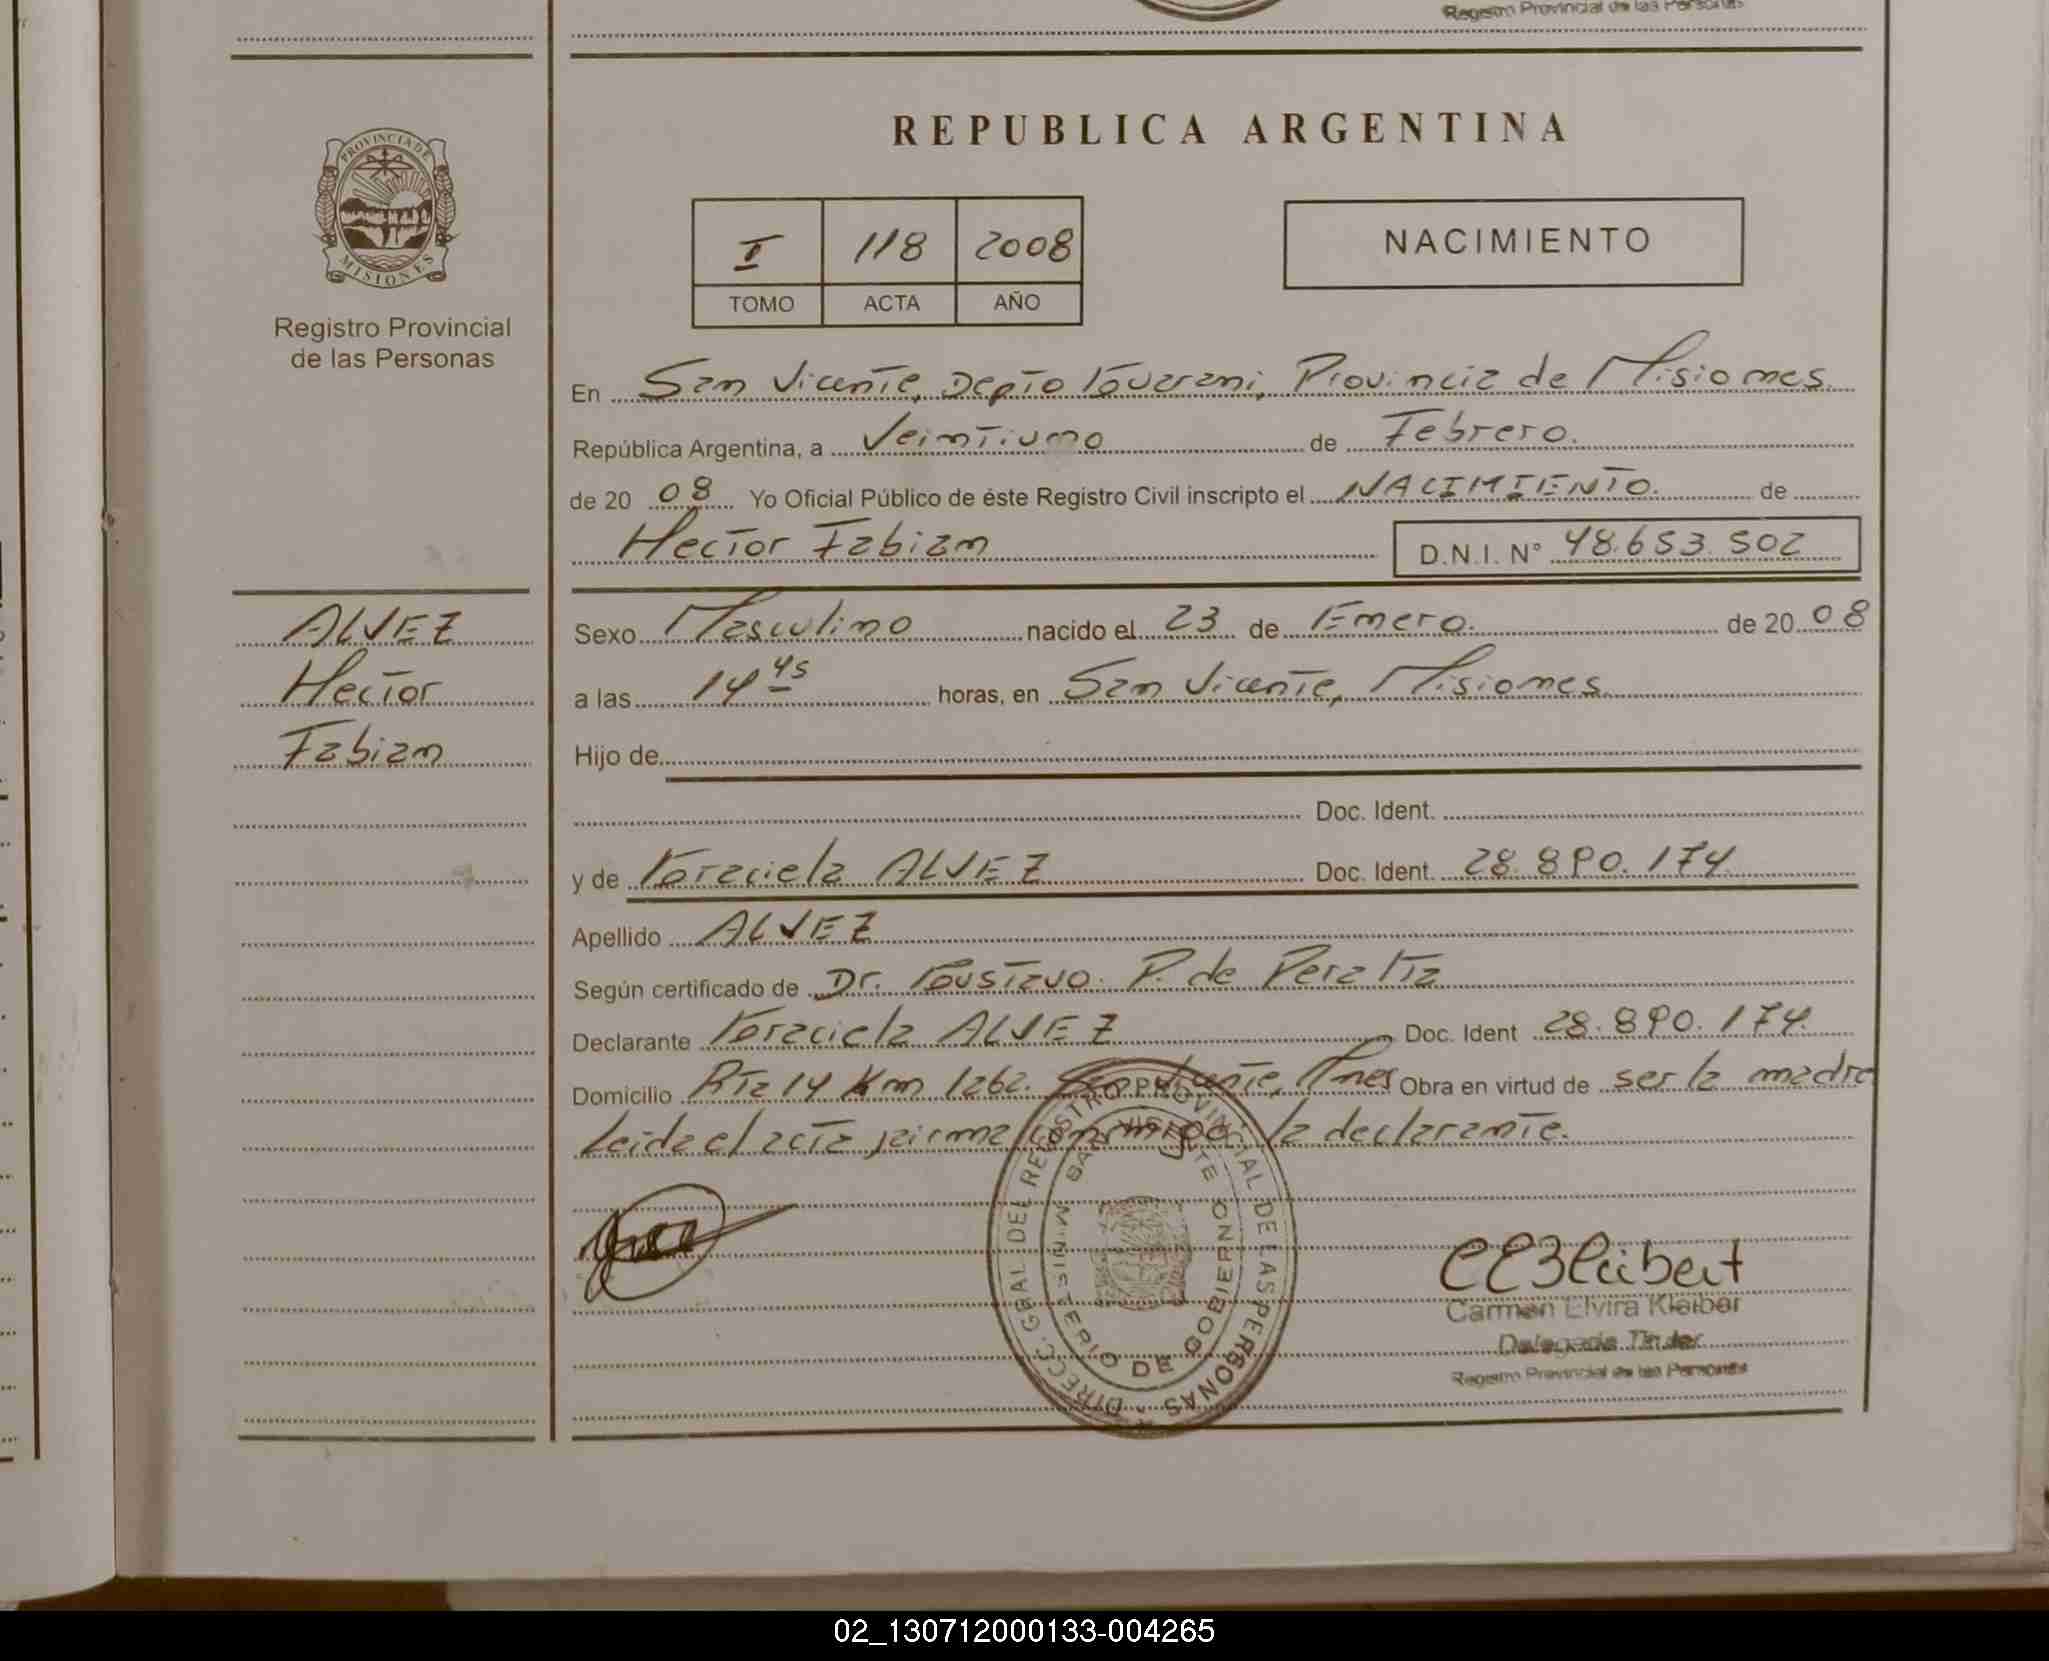 Registro Provincial de las Personas
REPUBLICA ARGENTINA
PROVINCIA DE
MISIONES
Registro Provincial
de las Personas
I 118 2008
TOMO ACTA AÑO
NACIMIENTO
En San Vicente, Depto Guarani, Provincia de Misiones
República Argentina, a Veintiuno de Febrero.
de 20 08 Yo Oficial Público de éste Registro Civil inscripto el NACIMIENTO. de
Hector Fabian D.N.I. N° 48.653.502
ALVEZ
Hector
Fabian
Sexo Masculino nacido el 23 de Enero. de 20 08
a las 14 45 horas, en San Vicente, Misiones
Hijo de
Doc. Ident.
y de Graciela ALVEZ Doc. Ident. 28.890.174
Apellido ALVEZ
Según certificado de Dr. Gustavo. P. de Peralta
Declarante Graciela ALVEZ Doc. Ident 28.890.174.
Domicilio Rta 14 Km 1262. San Vicente, Mnes Obra en virtud de ser la madre
Leida el acta firma conmigo la declarante.
DIRECC. GRAL DEL REGISTRO PROVINCIAL DE LAS PERSONAS
SAN VICENTE
MINISTERIO DE GOBIERNO
Carmen Elvira Kleiber
Delegada Titular
Registro Provincial de las Personas
02_130712000133-004265